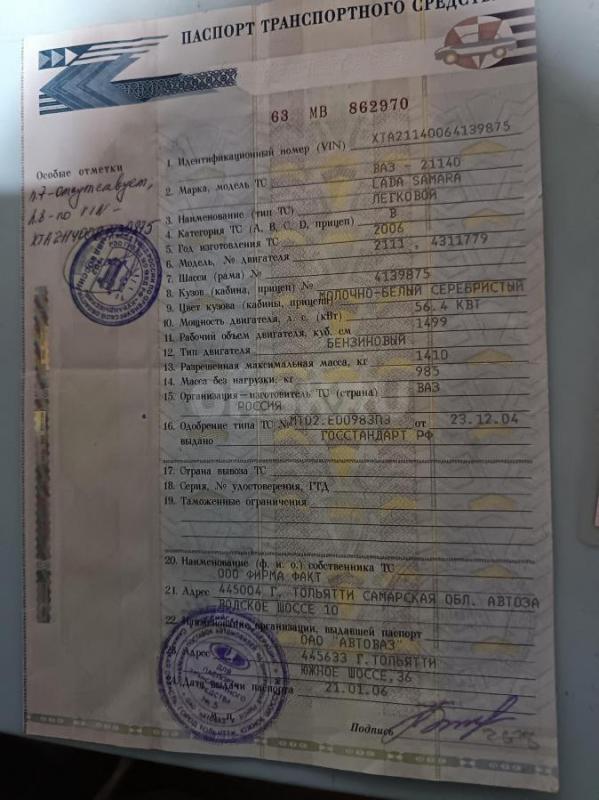 ПАСПОРТ ТРАНСПОРТНОГО СРЕДСТВ
63 МВ 862970
Особые отметки
п.7-отсутствует,
п.8-по VIN-
1. Идентификационный номер (VIN) XTA21140064139875
2. Марка, модель ТС ВАЗ - 21140
LADA SAMARA
3. Наименование (тип ТС) ЛЕГКОВОЙ
4. Категория ТС (A, B, C, D, прицеп) B
5. Год изготовления ТС 2006
6. Модель, № двигателя 2111 , 4311779
7. Шасси (рама) №
8. Кузов (кабина, прицеп) № 4139875
9. Цвет кузова (кабины, прицепа) МОЛОЧНО-БЕЛЫЙ СЕРЕБРИСТЫЙ
10. Мощность двигателя, л. с. (кВт) 56.4 КВТ
11. Рабочий объем двигателя, куб. см 1499
12. Тип двигателя БЕНЗИНОВЫЙ
13. Разрешенная максимальная масса, кг 1410
14. Масса без нагрузки, кг 985
15. Организация-изготовитель ТС (страна) ВАЗ
РОССИЯ
16. Одобрение типа ТС № МТ02.Е00983П3 от 23.12.04
выдано ГОССТАНДАРТ РФ
17. Страна вывоза ТС
18. Серия, № удостоверения, ГТД
19. Таможенные ограничения
20. Наименование (ф. и. о.) собственника ТС
ООО ФИРМА ФАКТ
21. Адрес 445004 Г. ТОЛЬЯТТИ САМАРСКАЯ ОБЛ. АВТОЗА
ВОДСКОЕ ШОССЕ 10
22. Наименование организации, выдавшей паспорт
ОАО "АВТОВАЗ"
23. Адрес 445633 Г.ТОЛЬЯТТИ
ЮЖНОЕ ШОССЕ,36
24. Дата выдачи паспорта 21.01.06
М. П.
Подпись
ДЛЯ
ПАСПОРТОВ
ТРАНСПОРТНЫХ
СРЕДСТВ
№ 5